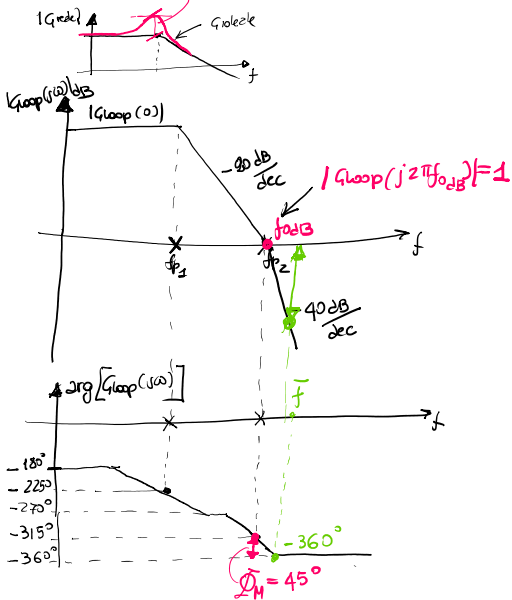 |Greale|
Greale
f
|Gloop(jω)|dB
|Gloop(0)|
-20 dB/dec
|Gloop(j2πf0dB)|=1
f0dB
f
fp1
fp2
-40 dB/dec
arg[Gloop(jω)]
f̄
f
-180°
-225°
-270°
-315°
-360°
-360°
ΦM = 45°